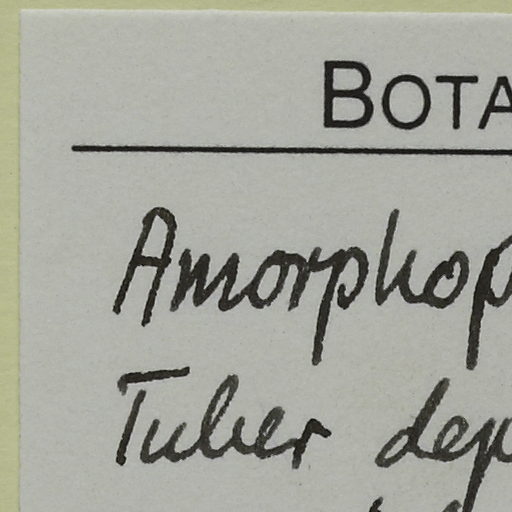 BOTA
Amorphop
Tuber dep